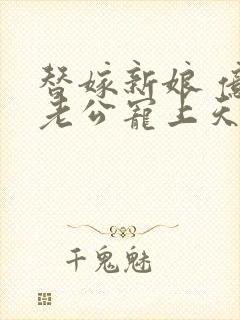 替嫁新娘
老公宠上天
千鬼魅